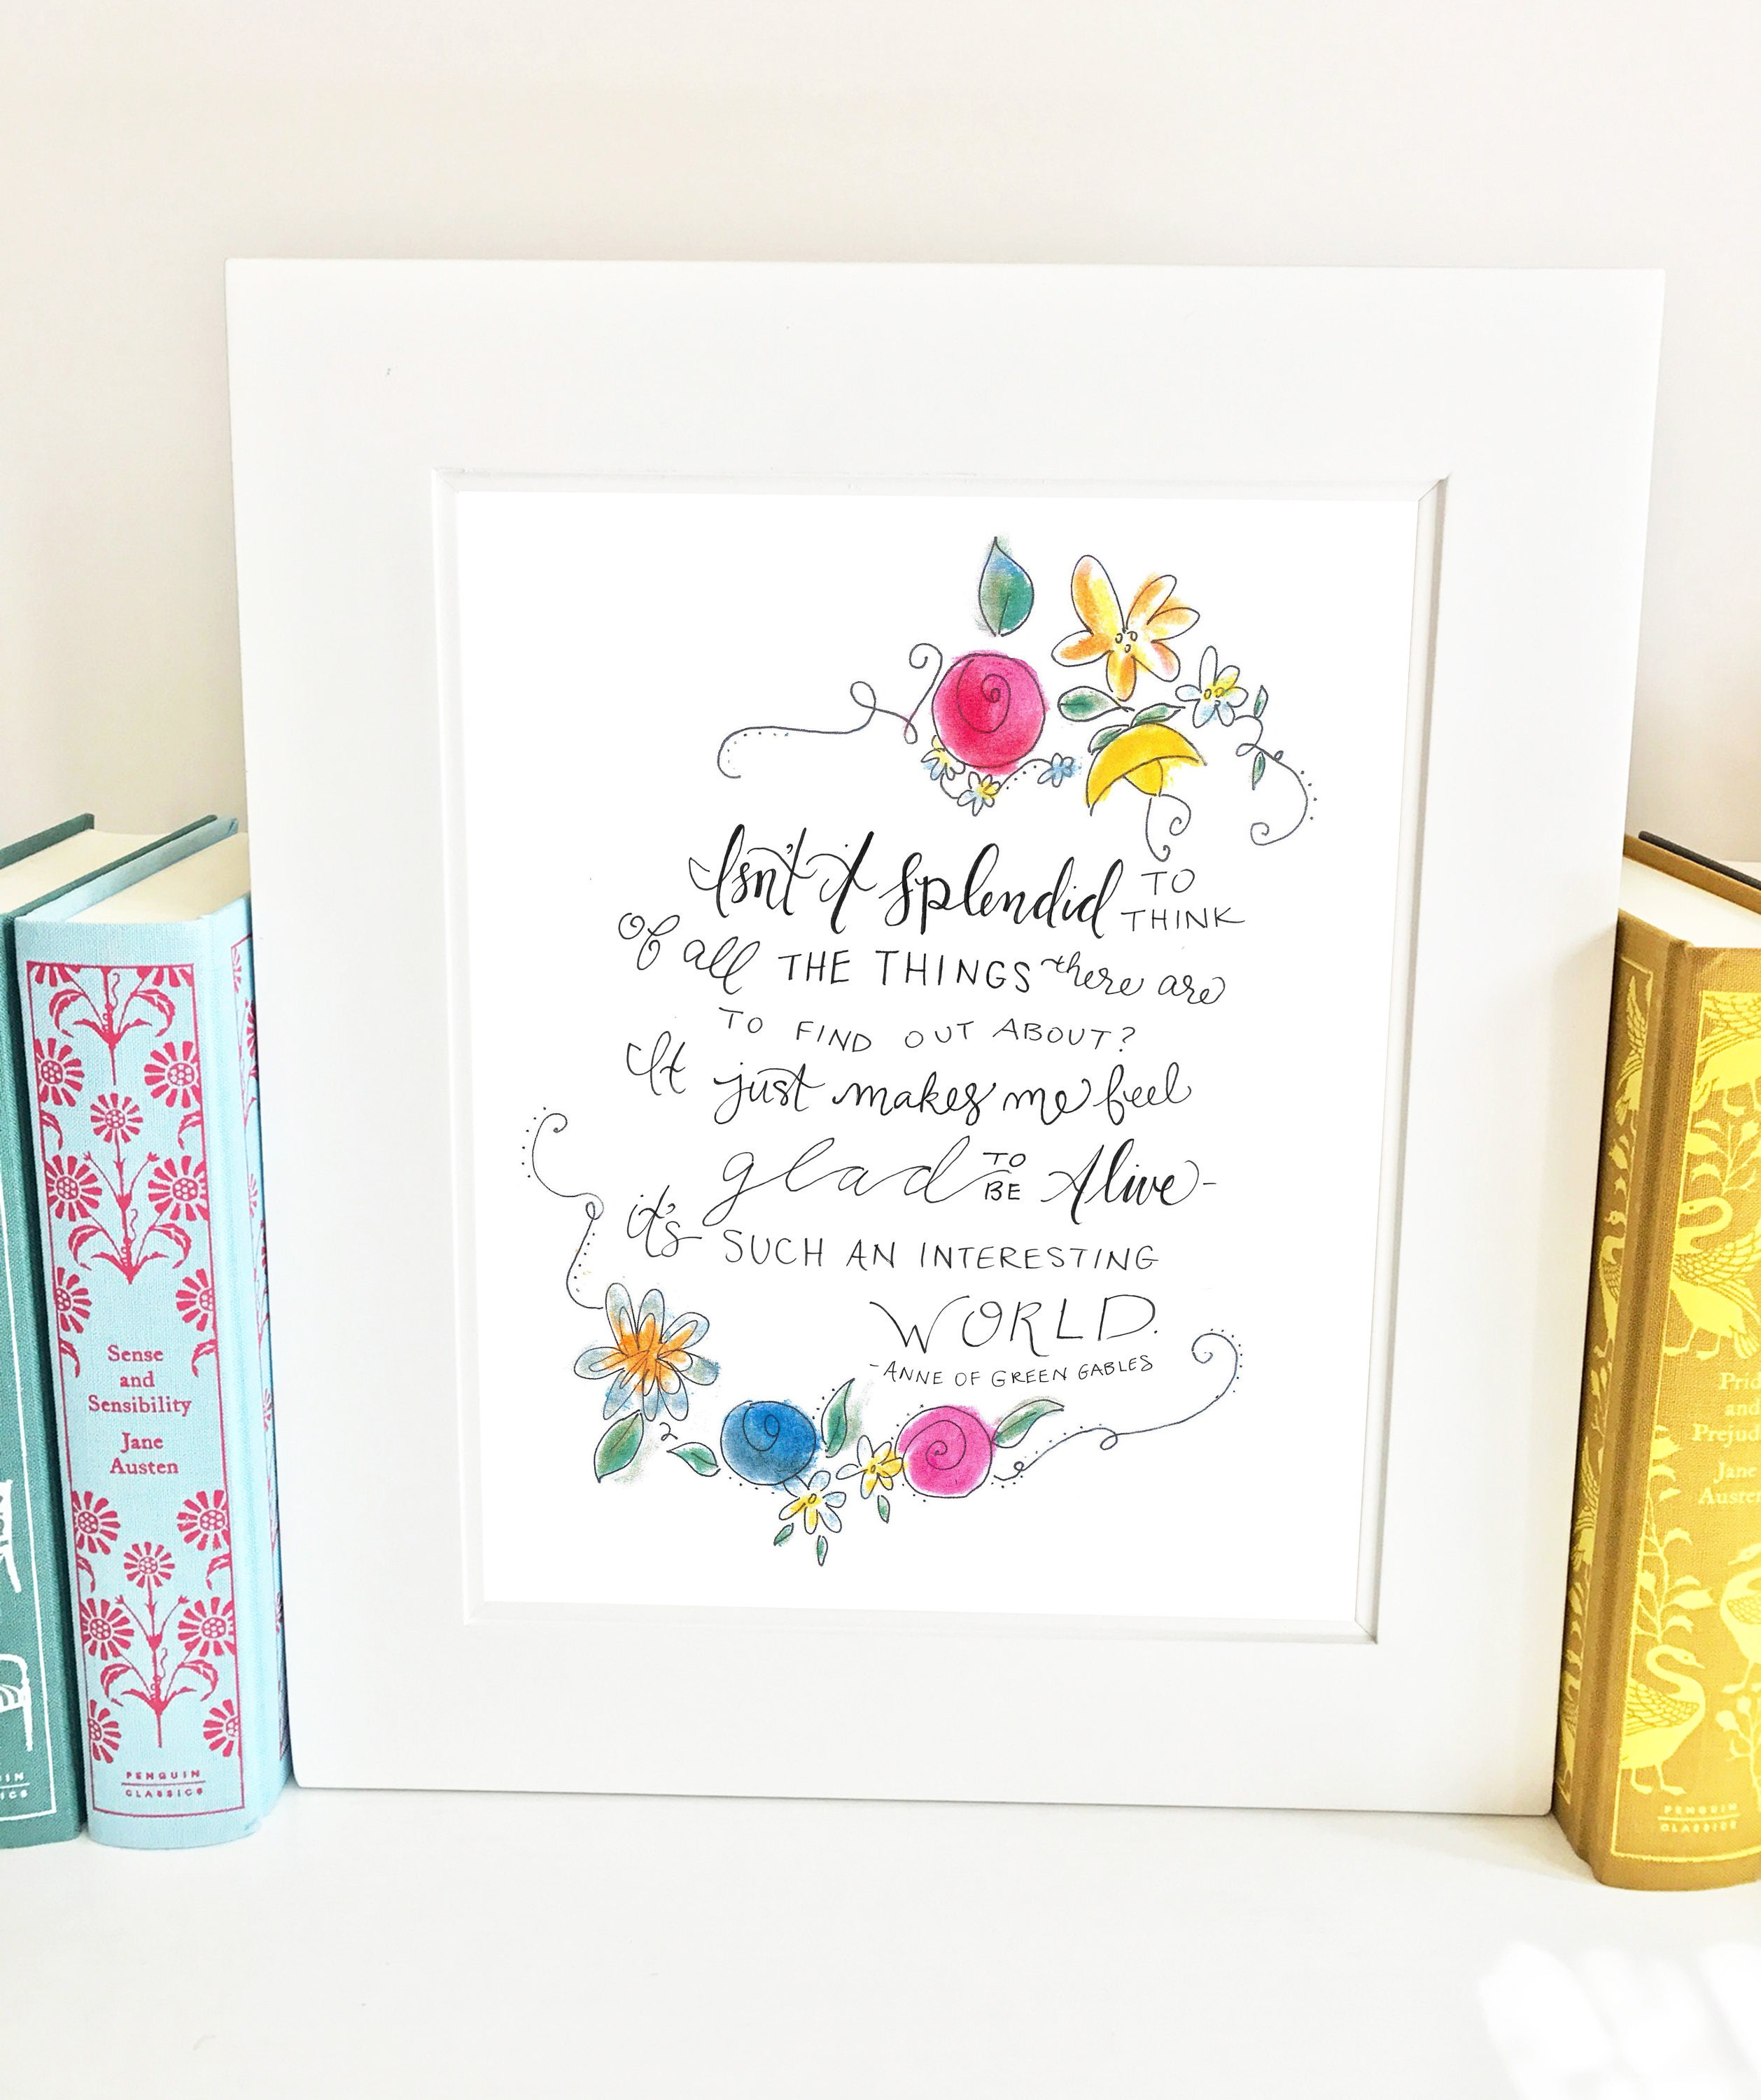 Isn't it splendid TO
THINK
of all THE THINGS there are
TO FIND OUT ABOUT?
It just makes me feel
glad TO BE Alive-
it's SUCH AN INTERESTING
WORLD.
-ANNE OF GREEN GABLES
Sense
and
Sensibility
Jane
Austen
PENGUIN
CLASSICS
and
Jane
PENGUIN
CLASSICS